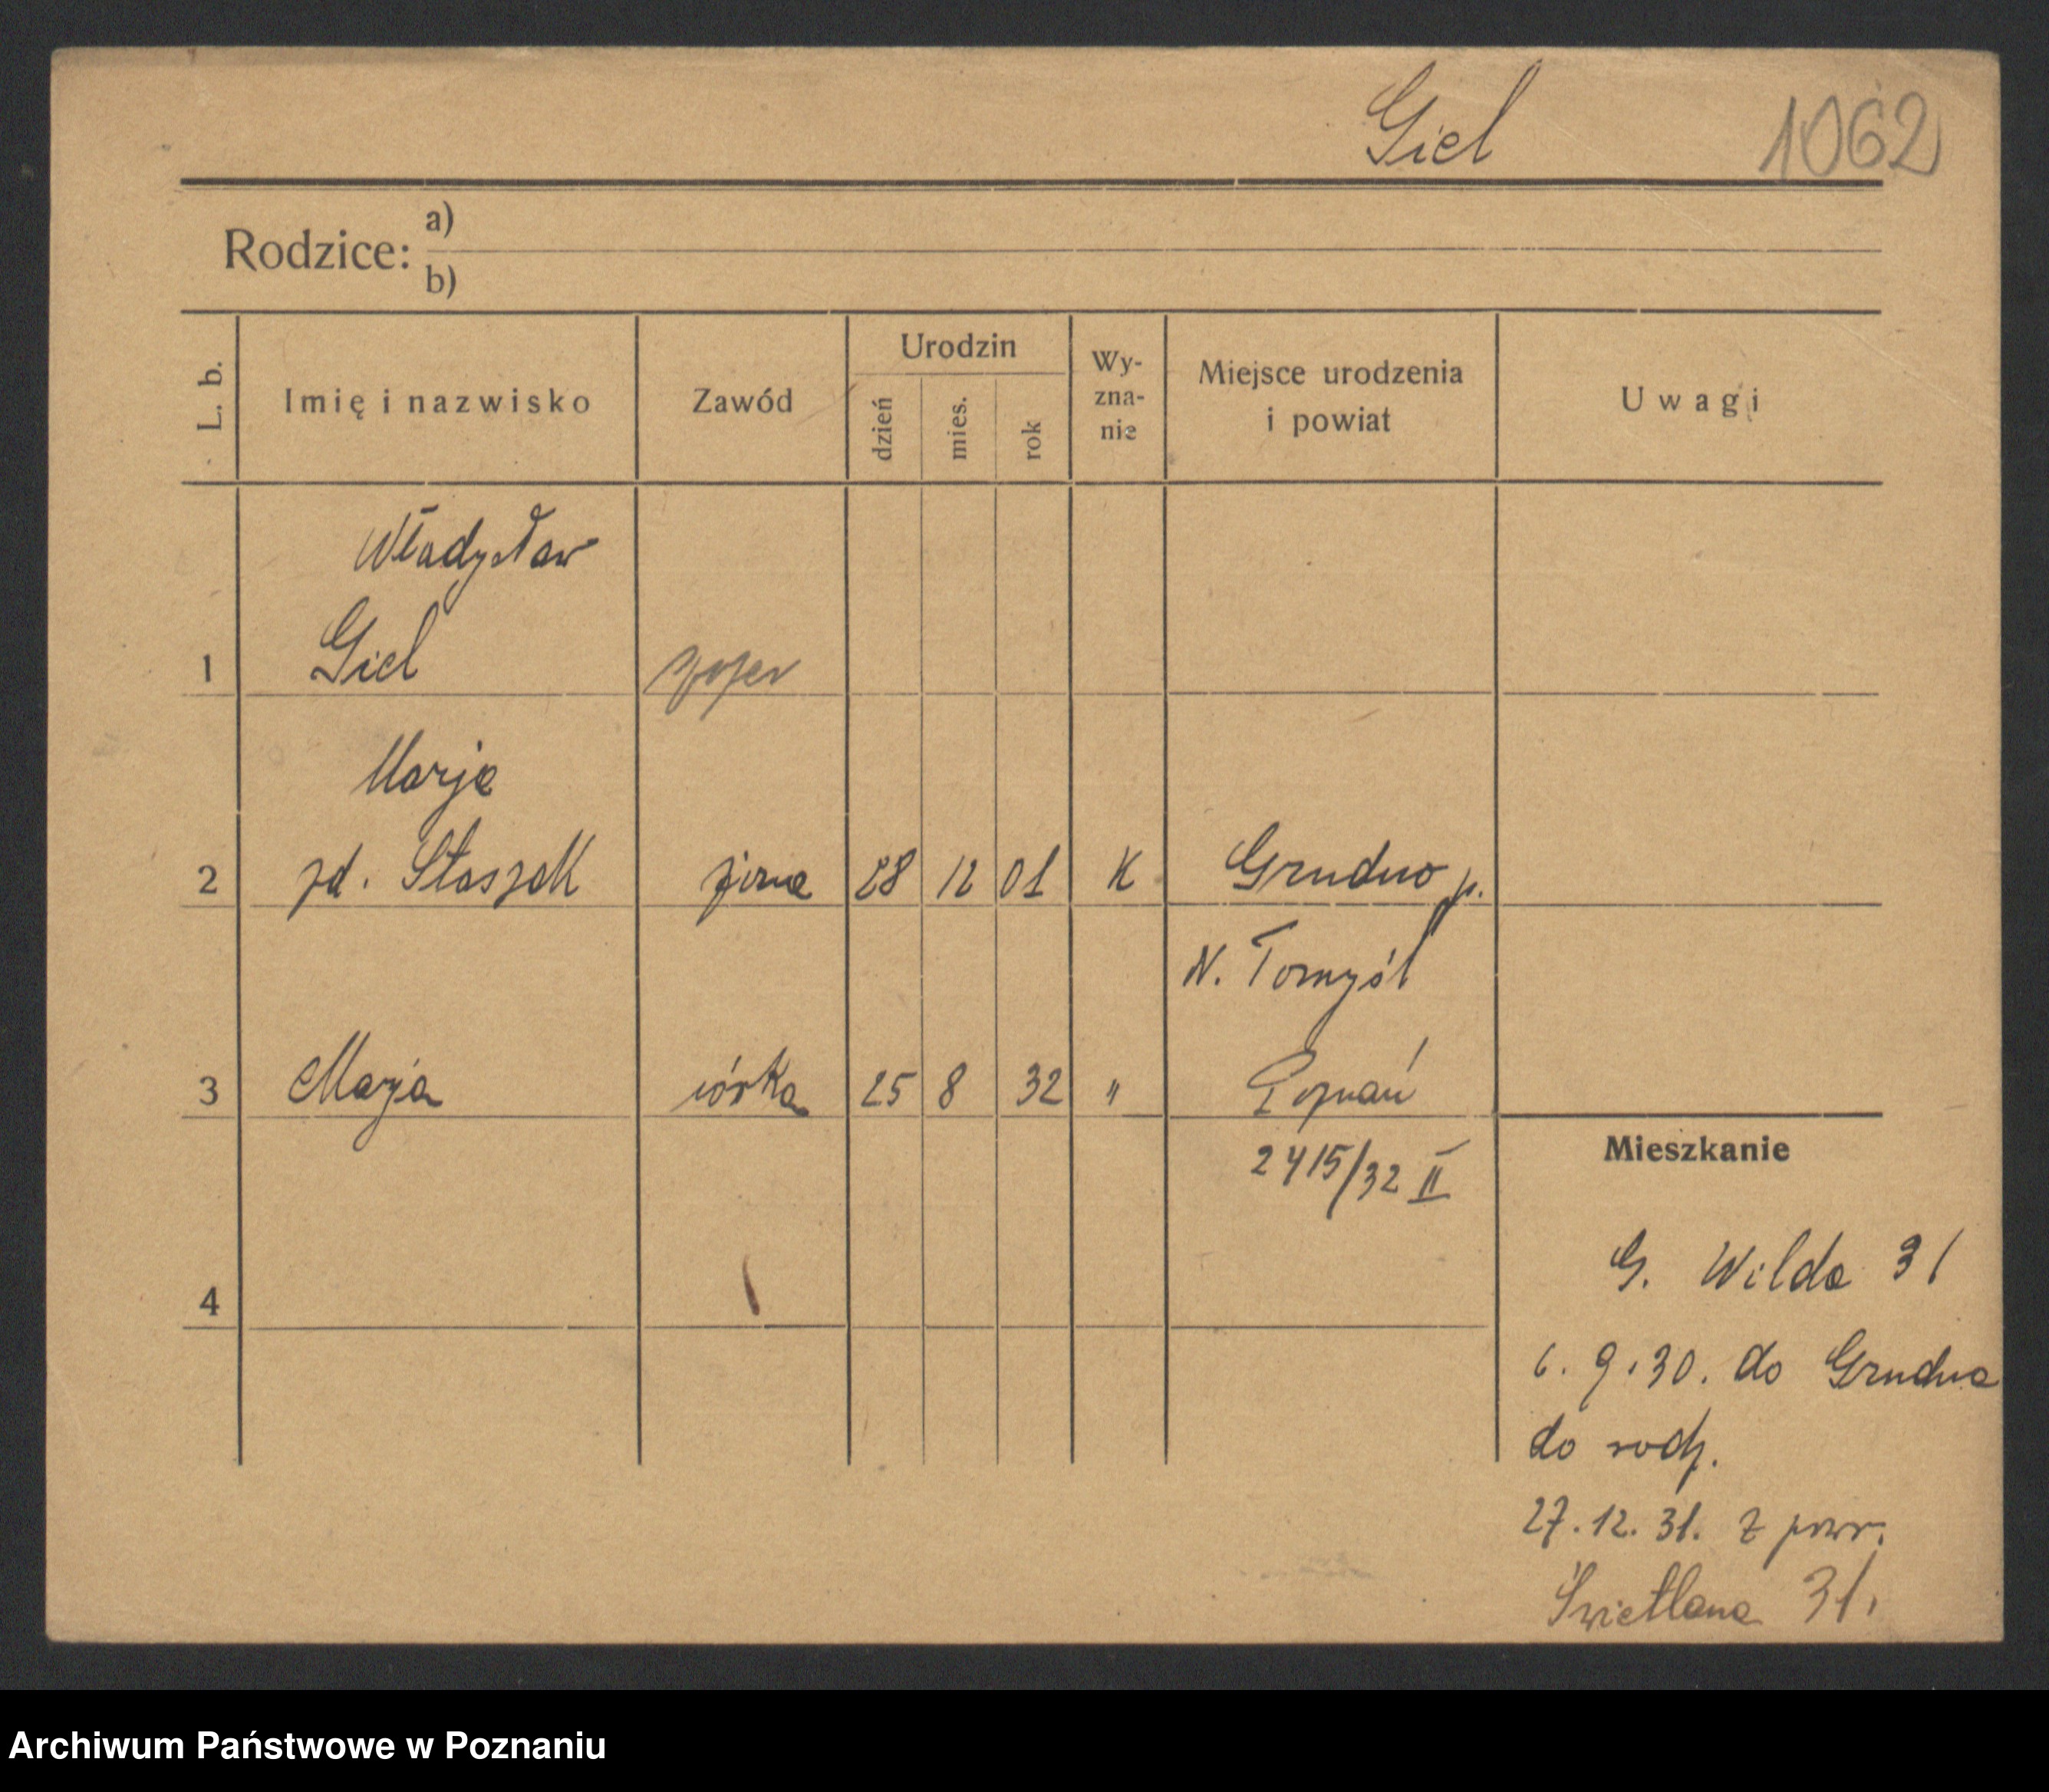 Giel 1062
Rodzice: a)
b)
L. b.
Imię i nazwisko
Zawód
Urodzin
dzień
mies.
rok
Wy-
zna-
nie
Miejsce urodzenia
i powiat
Uwagi
Władysław
1 Giel szofer
Marja
2 zd. Staszak żona 28 12 01 K Grudno p.
N. Tomyśl
3 Marja córka 25 8 32 " Poznań
2415/32 II
Mieszkanie
4
G. Wilda 31
6.9.30. do Grudna
do rodz.
27.12.31. z powr.
Świetlana 31.
Archiwum Państwowe w Poznaniu